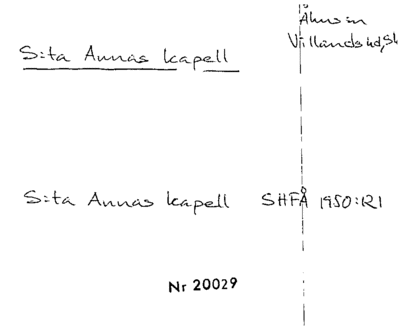 Åhus sn
S:ta Annas kapell
Villands hd, Sk
S:ta Annas kapell SHFÅ 1950:121
Nr 20029